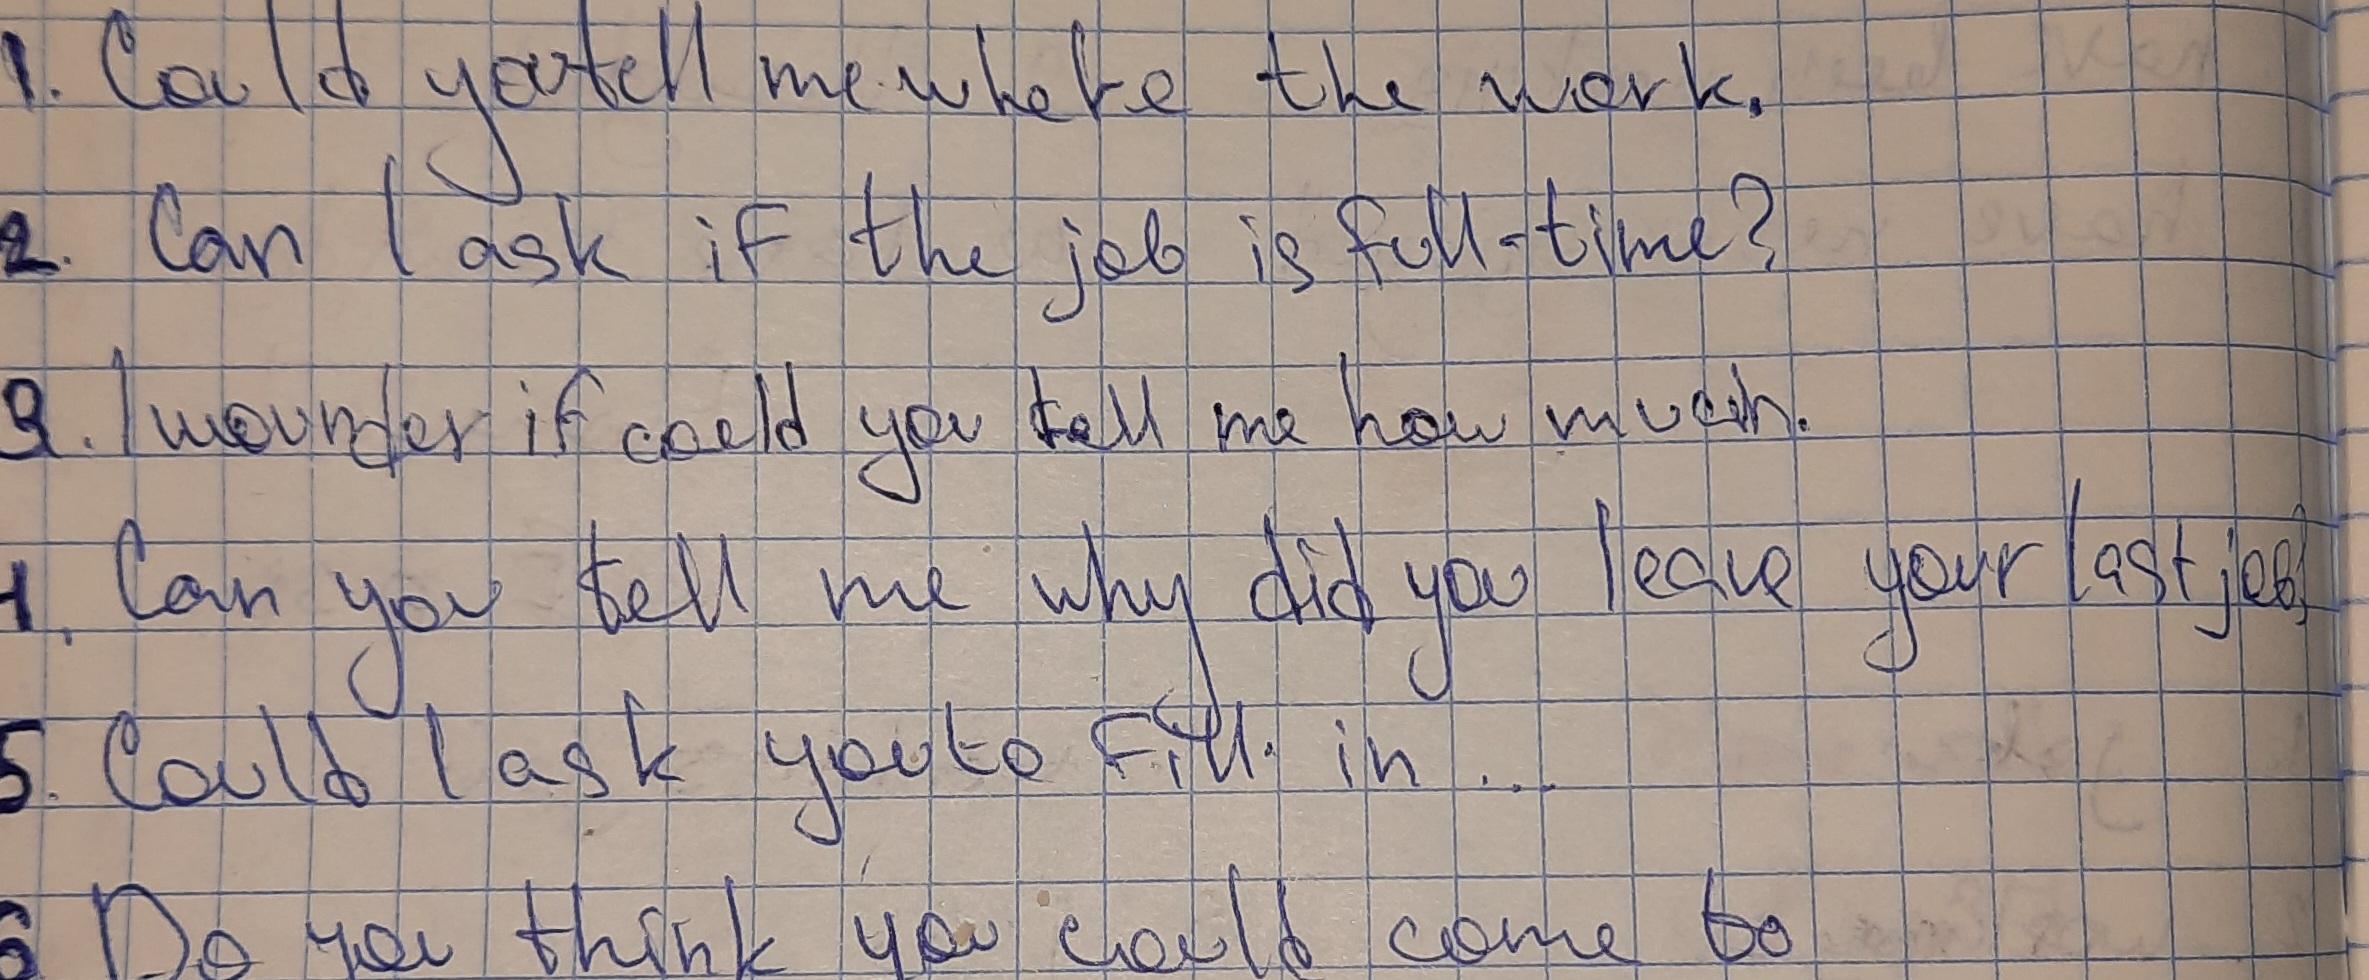 1. Could you tell me where the work.
2. Can I ask if the job is full-time?
3. I wounder if coeld you tell me how much.
4. Can you tell me why did you leave your last job?
5. Could I ask you to fill in ...
6 Do you think you could come to